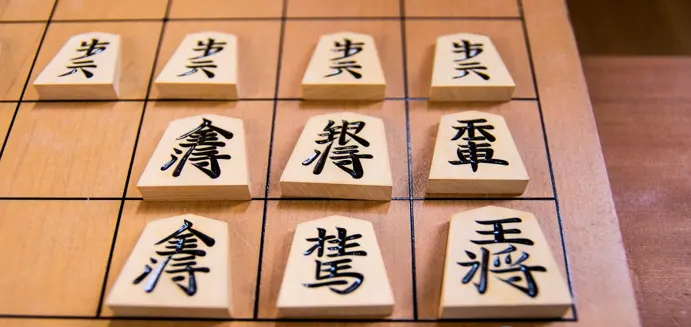 歩兵
歩兵
歩兵
歩兵
金将
銀将
香車
金将
桂馬
王将